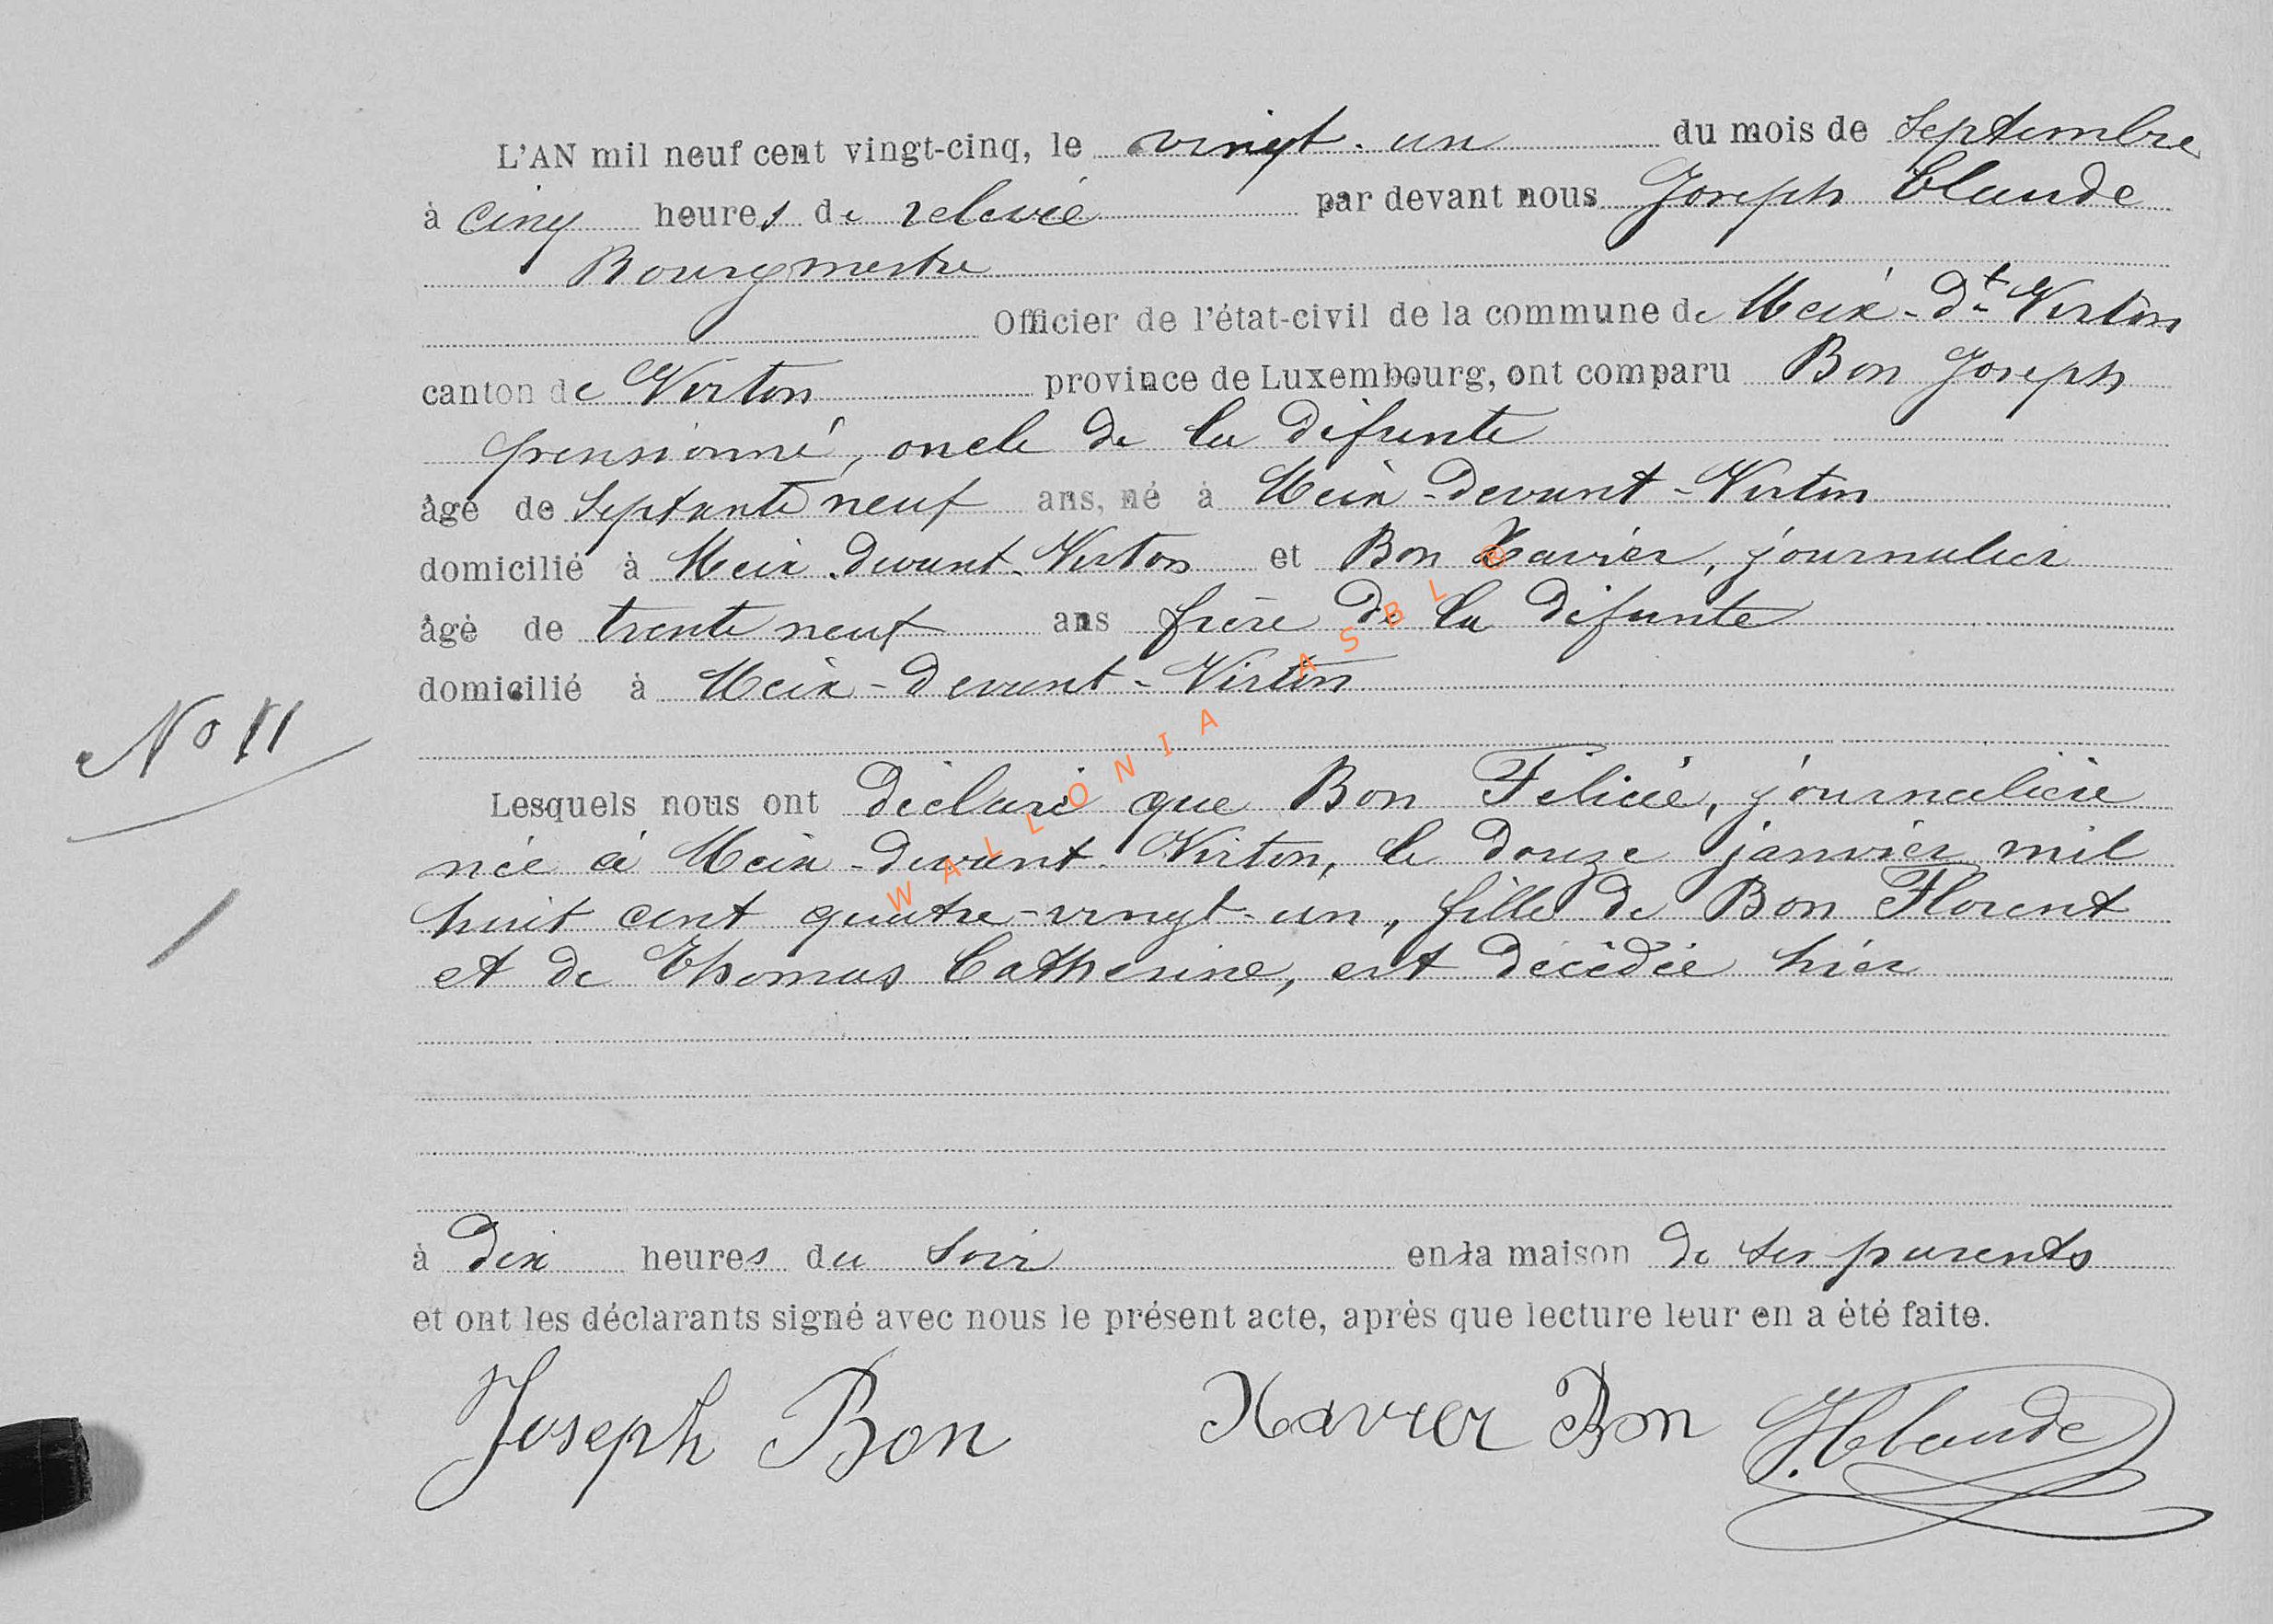 L'AN mil neuf cent vingt-cinq, le vingt-un du mois de Septembre
à cinq heures de relevée par devant nous Joseph Claude
Bourgmestre
Officier de l'état-civil de la commune de Meix-Dt Virton
canton de Virton province de Luxembourg, ont comparu Bon Joseph
pensionné, oncle de la défunte
âgé de septante neuf ans, né à Meix-devant-Virton
domicilié à Meix-devant-Virton et Bon Xavier, journalier
âgé de trente neuf ans frère de la défunte
domicilié à Meix-devant-Virton
No 11
Lesquels nous ont déclaré que Bon Félicie, journalière
née à Meix-devant-Virton, le douze janvier mil
huit cent quatre-vingt-un, fille de Bon Florent
et de Thomas Catherine, est décédée hier
à dix heures du soir en la maison de ses parents
et ont les déclarants signé avec nous le présent acte, après que lecture leur en a été faite.
Joseph Bon Xavier Bon J. Claude
WALLONIA ASBL ®